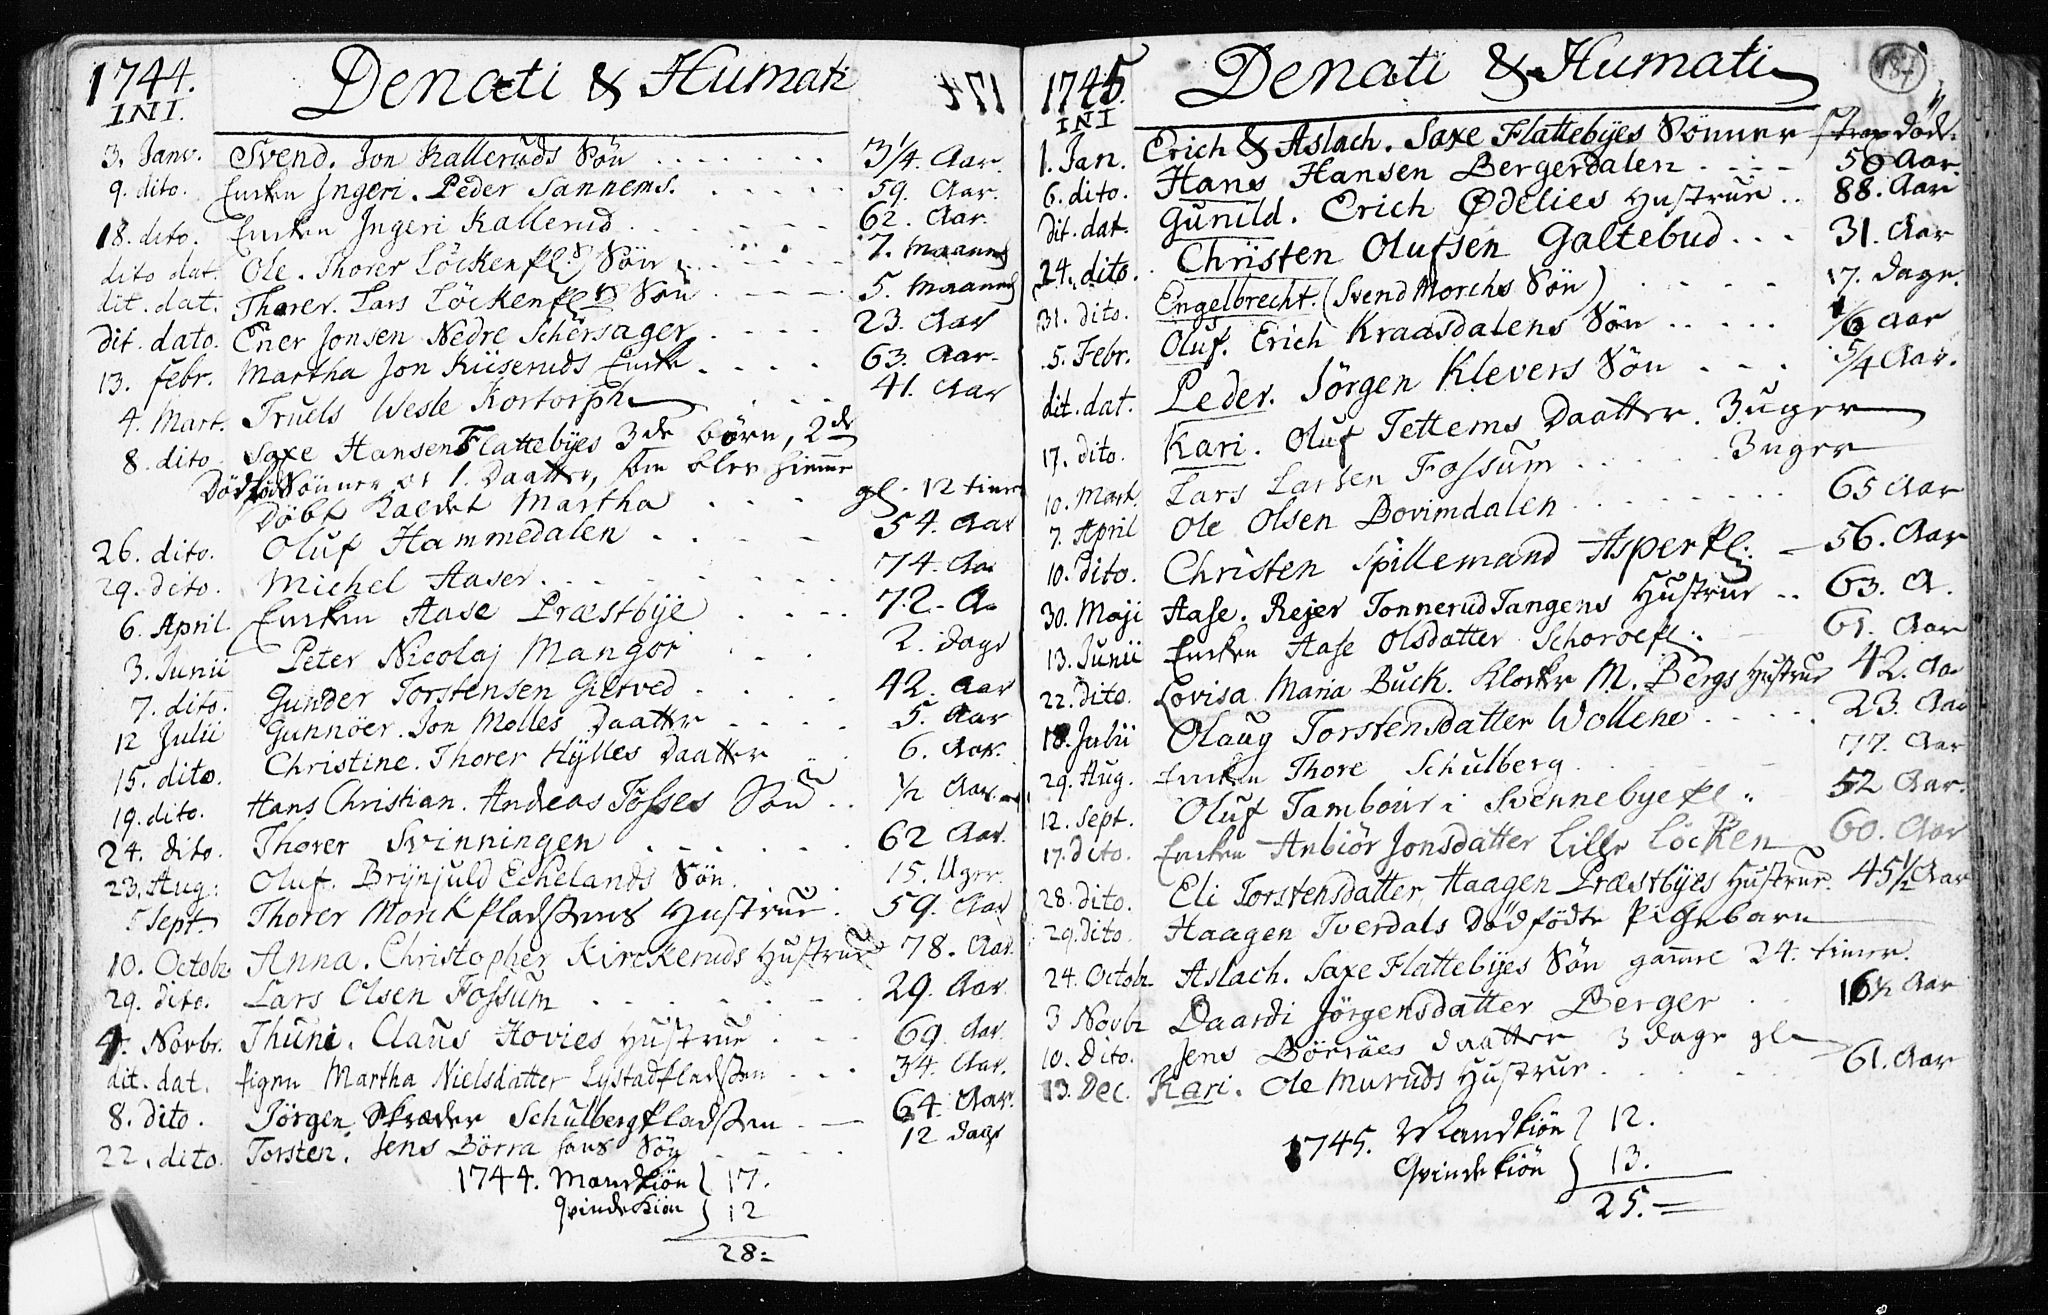 1744. Denati & Humati
INI.
3. Janv. Svend. Jon Kalleruds Sön 3/4. Aar.
9. dito. Encken Ingeri. Peder Sannems. 59. Aar.
18. dito. Encken Ingeri Kallerud 62. Aar.
dito dat. Ole. Thorer Löckenpl: Sön 7. Maaned
dit. dat. Thorer. Lars Löckenpl: Sön 5. Maaned
dit. dato. Ener Jonsen Nedre Schersager 23. Aar
13. febr. Martha Jon Kiiseruds Encke 63. Aar.
4. Mart. Truels Wesle Kortorph 41. Aar
8. dito. Saxe Hansens Flattebyes 3de börn, 2de
Dödfödde Sönner og 1. Daatter, som blev hiemme
Döbt kaldet Martha gl. 12 timer
26. dito. Oluf Hammedalen 54. Aar
29. dito. Michel Aaser 74. Aar
6. April. Encken Aase Præstbye 72. A.
3. Junii Peter Nicolaj Mangor 2. dage
7. dito. Gunder Torstensen Gietved 42. Aar
12 Julii Gunnöer. Jon Molles Daatter 5. Aar
15. dito. Christine. Thorer Hylles Daatter 6. Aar.
19. dito. Hans Christian. Andreas Tösses Sön 1/2 Aar
24. dito. Thorer Svinningen 62 Aar.
23. Aug: Oluf. Brynjuld Eckelands Sön. 15. Uger.
5 Sept. Thorer Monkpladsens Hustrue. 59. Aar
10. Octobr Anna. Christopher Kirckeruds Hustrue 78. Aar.
29. dito. Lars Olsen Fossum 29. Aar.
4. Novbr. Thuni. Claus Hovies Hustrue 69. Aar.
dit. dat. Pigen Martha Nielsdatter Lystadpladsen 34. Aar.
8. dito. Jörgen Skræder Schulbergpladsen 64. Aar.
22. dito. Torsten. Jens Börra Sön 12 dage
1744. Mandkiön } 17.
Qvindekiön } 12
28=
1745. Denati & Humati 184
INI
1. Jan. Erich & Aslach. Saxe Flattebyes Sönner strax döde.
6. dito. Hans Hansen Bergerdalen 50 Aar.
dit. dat. Gunild. Erich Ødelies Hustrue 88. Aar
24. dito. Christen Olufsen Galtebud 31. Aar
31. dito. Engelbrecht. (Svend Morchs Sön) 17. dage.
5. Febr. Oluf. Erich Kraasdalens Sön 1/6 Aar
dit. dat. Peder. Jörgen Klevers Sön 5/4 Aar.
17. dito. Kari. Oluf Tettems Daatter. 3. uger
10. Mart. Lars Larsen Fossum 3 uger
7. April Ole Olsen Bovimdalen 65 Aar
10. Dito. Christen Spillemand Asperpl: 56. Aar
30. Maji Aase. Rejer Tonnerud Tangens Hustrue 63. A.
13. Junii Encken Aase Olsdatter Schoroepl: 61. Aar
22. Dito. Lovisa Maria Buck. Klocker M. Bergs Hustrue 42. Aar
18. Julii Olaug Torstensdatter Wollene 23. Aar
29. Aug. Encken Thore Schulberg 77. Aar
12. Sept. Oluf Tambour i Svennebyepl: 52 Aar.
17. Dito. Encken Anbiör Jonsdatter Lille Löcken 60. Aar
28. Dito. Eli Torstensdatter, Haagen Præstbyes Hustrue. 45 1/2 Aar
29. Dito. Haagen Tverdals Dödfödte Pigebarn
24. Octobr Aslach. Saxe Flattebyes Sön gamme 24. timer.
3 Novbr Daardi Jörgensdatter Berger 16 1/2 Aar
10. Dito. Jens Börraes Daatter 3 dage gl
13. Dec. Kari. Ole Muruds Hustrue 61. Aar
1745. Mandkiön } 12.
Qvindekiön } 13.
25.=